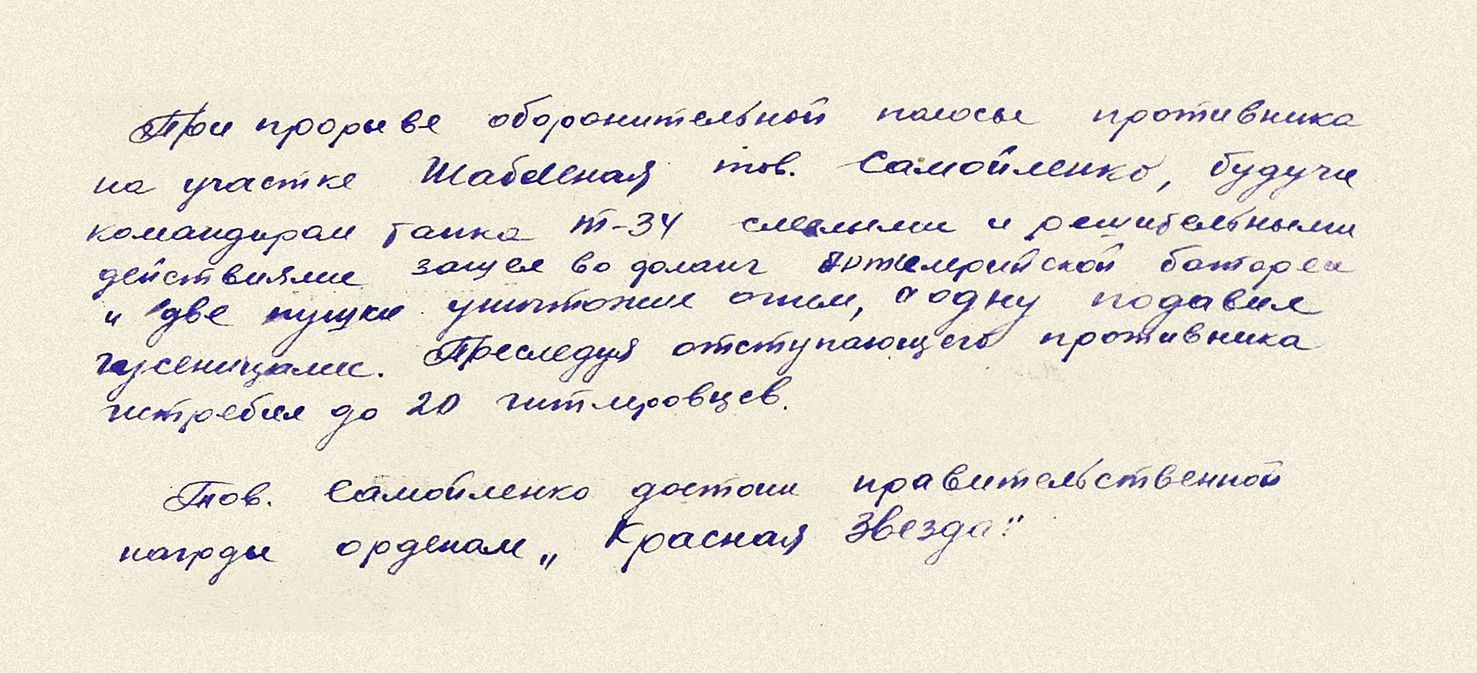 При прорыве оборонительной полосы противника
на участке тов. Самойленко, будучи
командиром танка Т-34 смелыми и решительными
действиями зашел во фланг артиллерийской батареи
и две пушки уничтожил огнем, а одну подавил
гусеницами. Преследуя отступающего противника
истребил до 20 гитлеровцев.
Тов. Самойленко достоин правительственной
награды орденом „Красная Звезда"